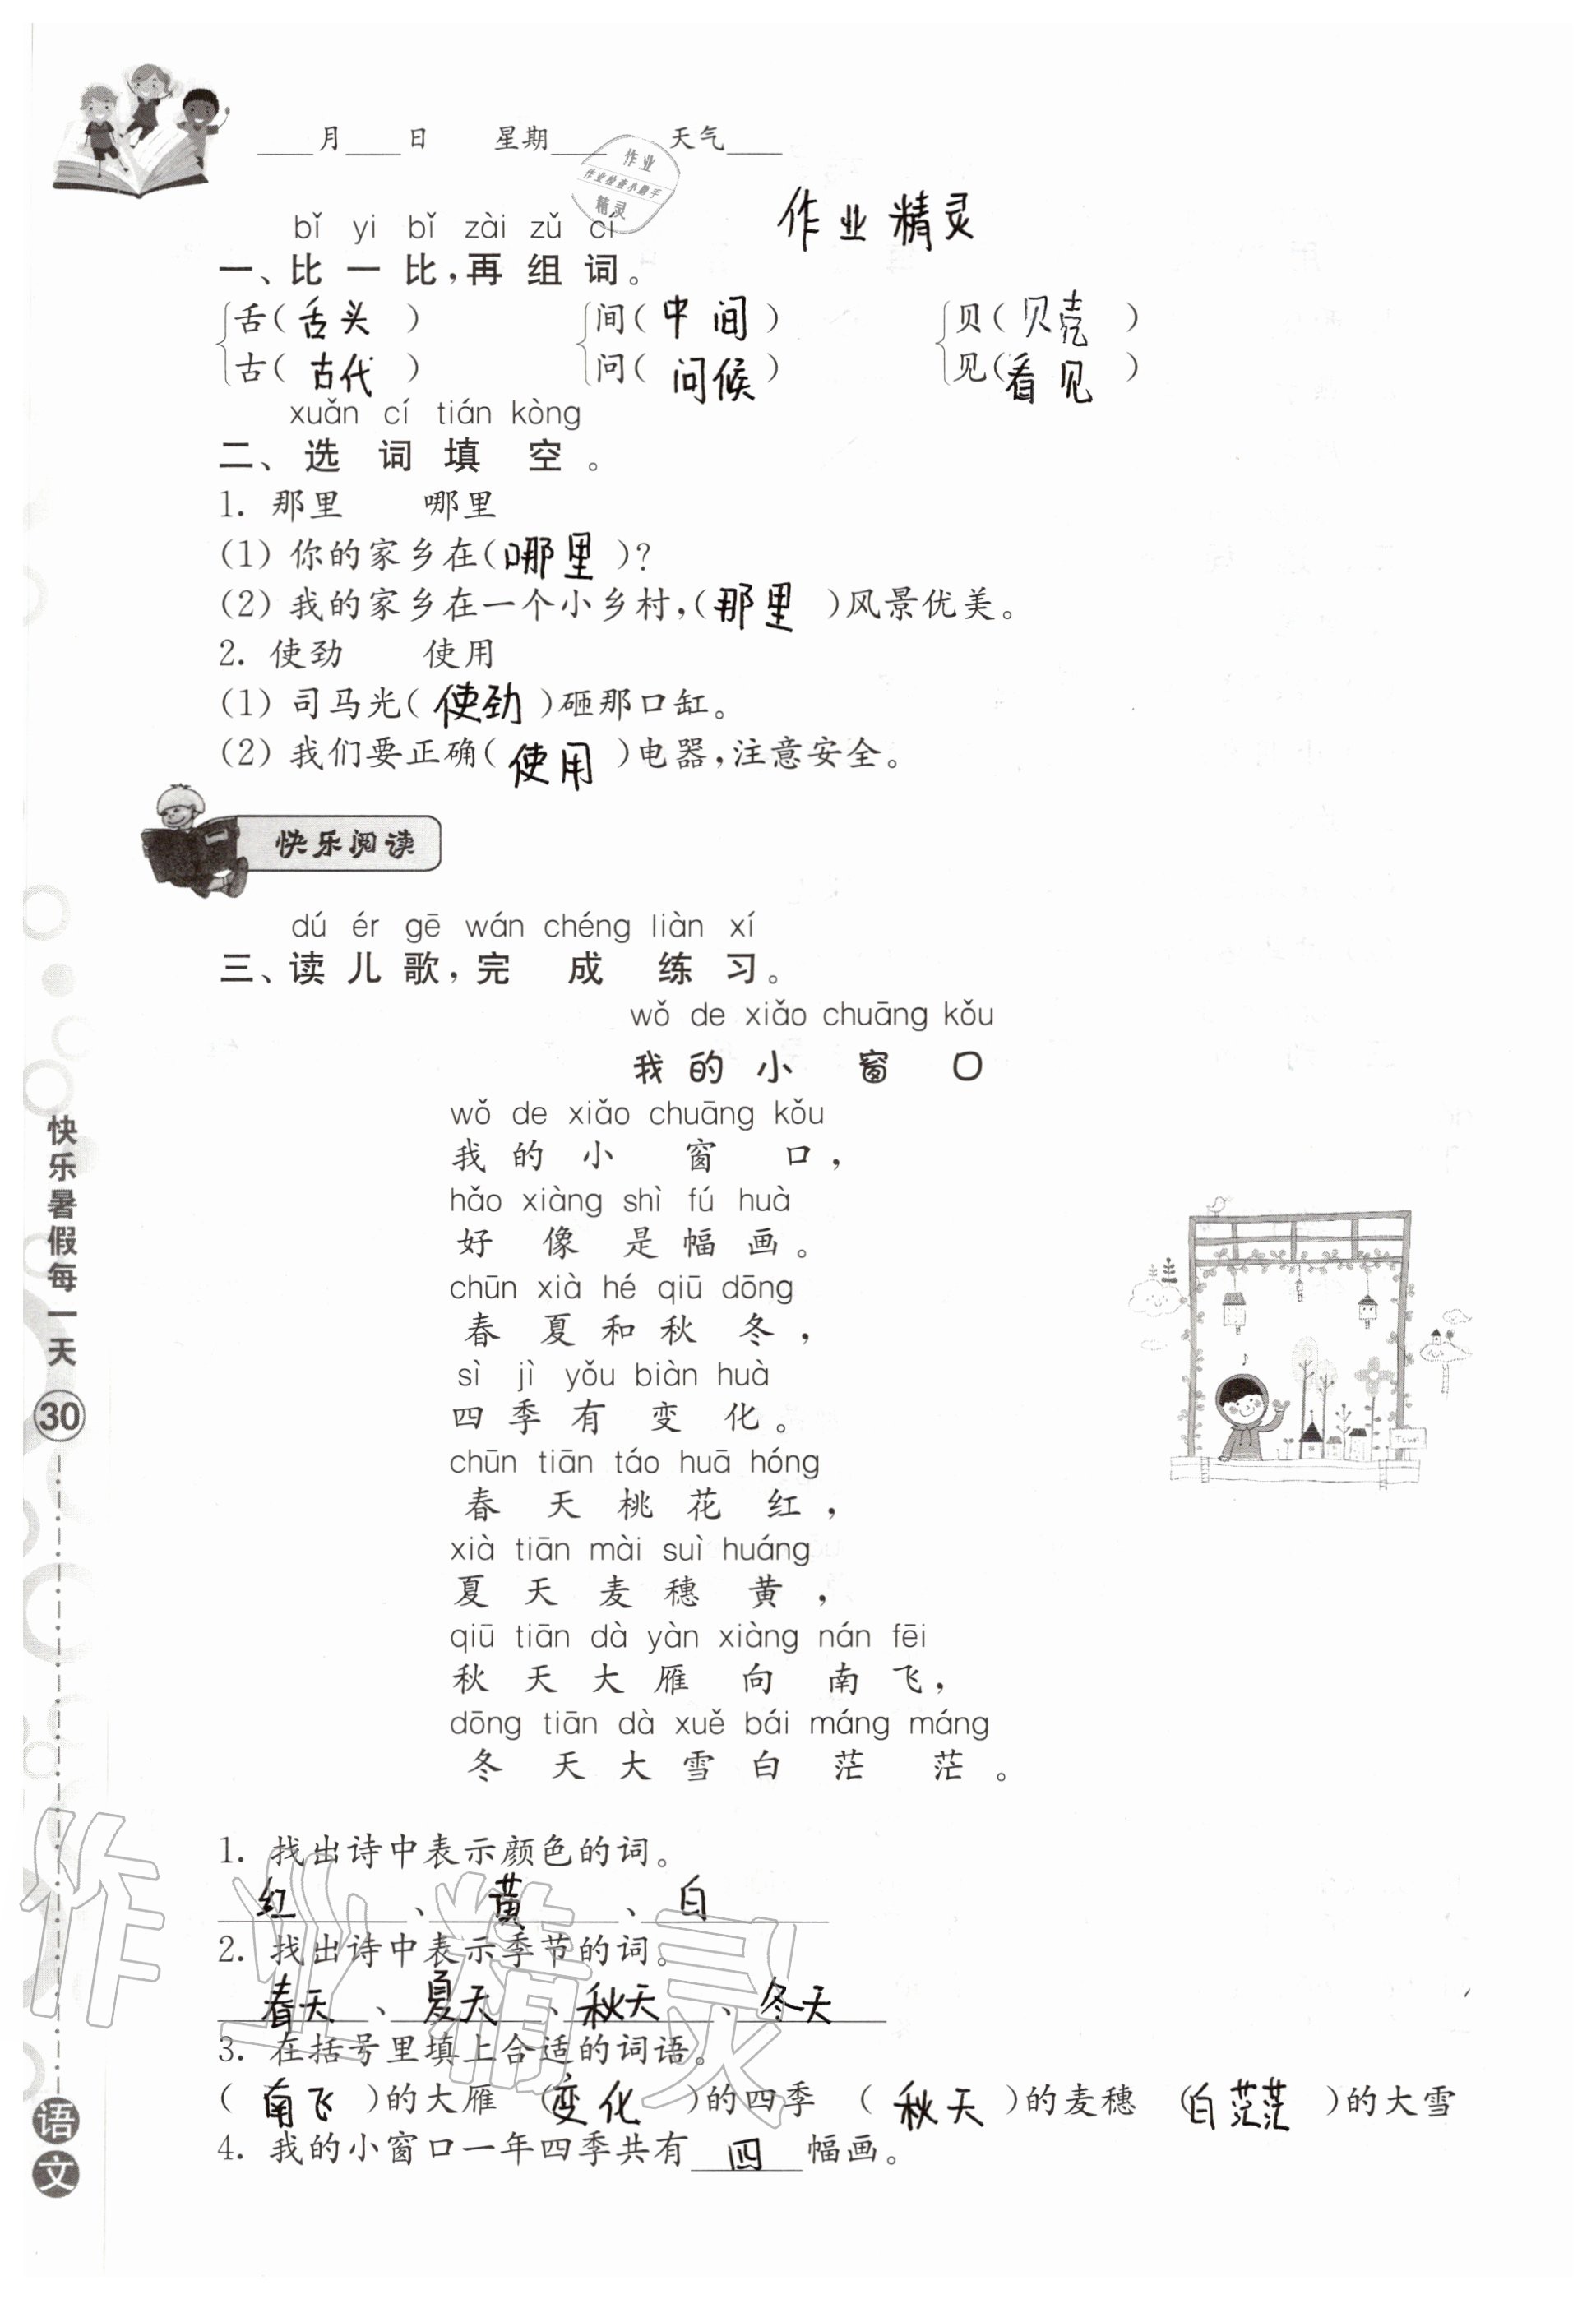 ____月____日 星期____ 天气____
作业
作业检查小助手
精灵
作业精灵
bǐ yi bǐ zài zǔ cí
一、比一比,再组词。
舌(舌头) 间(中间) 贝(贝壳)
古(古代) 问(问候) 见(看见)
xuǎn cí tián kòng
二、选词填空。
1. 那里 哪里
(1) 你的家乡在(哪里)?
(2) 我的家乡在一个小乡村,(那里)风景优美。
2. 使劲 使用
(1) 司马光(使劲)砸那口缸。
(2) 我们要正确(使用)电器,注意安全。
快乐阅读
dú ér gē wán chéng liàn xí
三、读儿歌,完成练习。
wǒ de xiǎo chuāng kǒu
我的小窗口
wǒ de xiǎo chuāng kǒu
我的小窗口,
hǎo xiàng shì fú huà
好像是幅画。
chūn xià hé qiū dōng
春夏和秋冬,
sì jì yǒu biàn huà
四季有变化。
chūn tiān táo huā hóng
春天桃花红,
xià tiān mài suì huáng
夏天麦穗黄,
qiū tiān dà yàn xiàng nán fēi
秋天大雁向南飞,
dōng tiān dà xuě bái máng máng
冬天大雪白茫茫。
1. 找出诗中表示颜色的词。
红、黄、白
2. 找出诗中表示季节的词。
春天、夏天、秋天、冬天
3. 在括号里填上合适的词语。
(南飞)的大雁 (变化)的四季 (秋天)的麦穗 (白茫茫)的大雪
4. 我的小窗口一年四季共有四幅画。
快乐暑假每一天
30
语文
作业精灵